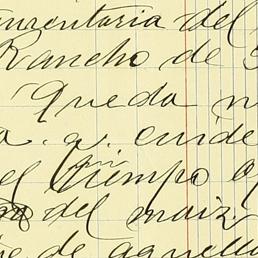 mentaria del
Rancho de
Queda
a. v. cuide
el tiempo
del maiz.
de aquell